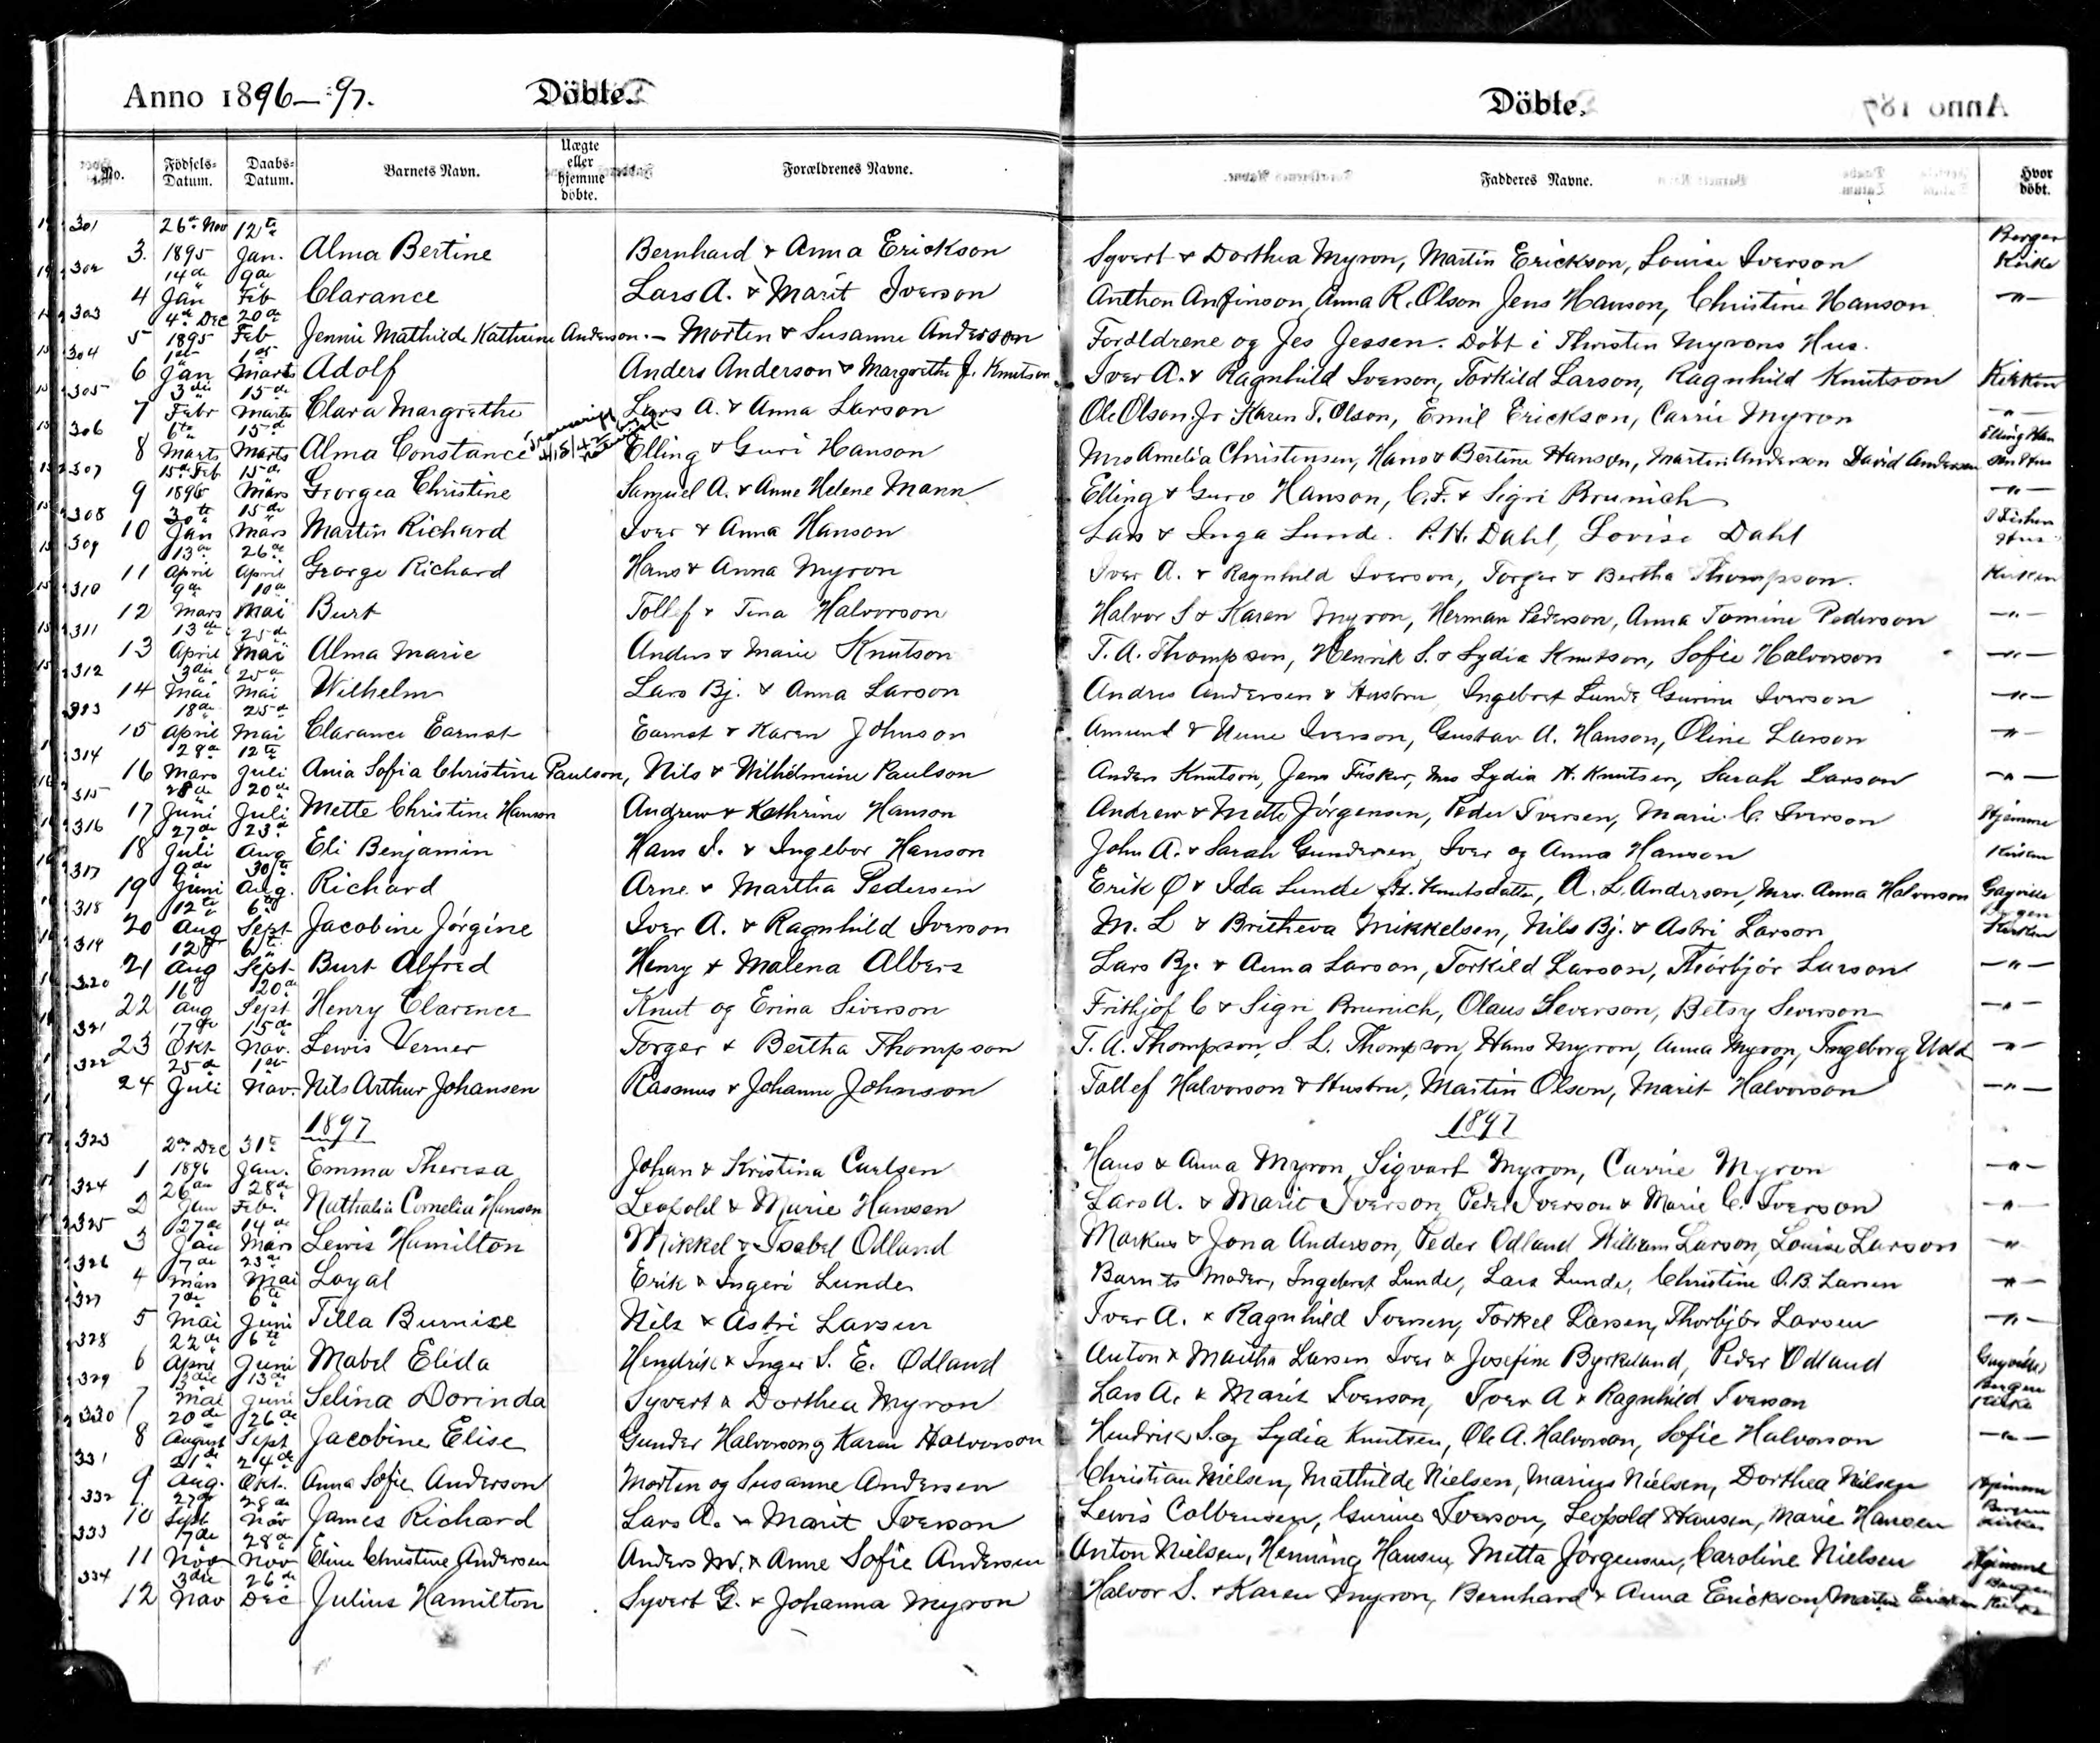 Anno 1896–97. Döbte. Döbte.
No. Födsels-Datum. Daabs-Datum. Barnets Navn. Uægte eller hjemme döbte. Forældrenes Navne. Fadderes Navne. Hvor döbt.
301 3. 26de Nov 1895 12te Jan. Alma Bertine Bernhard & Anna Erickson Syvert & Dorthea Myron, Martin Erickson, Louise Iverson Bergen Kirke
302 4 14de Jan 9de Feb Clarance Lars A. & Marit Iverson Anthon Anfinson, Anna R. Olson Jens Hanson, Christine Hanson –"–
303 5 4de Dec 1895 20de Feb Jennie Mathilde Kathrine Anderson. – Morten & Susanne Anderson Forældrene og Jes Jessen. Döbt i Thorsten Myrons Hus.
304 6 1st Jan 1st Marts Adolf Anders Anderson & Margrethe J. Knutson Iver A. & Ragnhild Iverson, Torkild Larson, Ragnhild Knutson Kirken
305 7 3die Febr 15de Marts Clara Margrethe Lars A. & Anna Larson Ole Olson Jr Karen T. Olson, Emil Erickson, Carrie Myron –"–
306 8 6te Marts 15de Marts Alma Constance Elling & Guri Hanson Mrs Amelia Christensen, Hans & Bertine Hanson, Martin Anderson David Andersen Elling Hansons Hus
307 9 15de Feb 1896 15de Mars Georgea Christine Samuel A. & Anne Helene Mann Elling & Guro Hanson, C. F. & Sigri Brunich –"–
308 10 30te Jan 15de Mars Martin Richard Iver & Anna Hanson Lars & Inga Lunde. P. H. Dahl, Lovise Dahl Hus
309 11 13de April 26de April George Richard Hans & Anna Myron Iver A. & Ragnhild Iverson, Torger & Bertha Thompson. Kirken
310 12 9de Mars 10de Mai Burt Tollef & Tina Halvorson Halvor S & Karen Myron, Herman Pederson, Anna Tomine Pederson –"–
311 13 13de April 25de Mai Alma Marie Anders & Marie Knutson T. A. Thompson, Henrik S. & Lydia Knutson, Sofie Halvorson –"–
312 14 3die Mai 25de Mai Wilhelm Lars Bj. & Anna Larson Andres Andersen & Hustru, Ingebret Lunde Gurine Iverson –"–
313 15 18de April 25de Mai Clarance Earnst Earnst & Karen Johnson Amund & Anne Iverson, Gustav A. Hanson, Oline Larson –"–
314 16 28de Mars 12te Juli Ania Sofia Christine Paulson, Nils & Wilhelmine Paulson Anders Knutson, Jens Fisker, Mrs Lydia H. Knutsen, Sarah Larson –"–
315 17 28de Juni 20de Juli Mette Christine Hanson Andrew & Kathrine Hanson Andrew & Mette Jörgensen, Peder Iversen, Marie C. Iverson Hjemme
316 18 27de Juli 23de Aug Eli Benjamin Hans I. & Ingebor Hanson John A. & Sarah Gundersen, Iver og Anna Hanson Kirken
317 19 9de Juni 30te Aug. Richard Arne & Martha Pedersen Erik Ø & Ida Lunde H. Knutsdatter, A. L. Anderson, Mrs. Anna Halvorson Gayville
318 20 12te Aug 6te Sept Jacobine Jörgine Iver A. & Ragnhild Iverson M. L & Britheva Mikkelsen, Nils Bj. & Astri Larson Bergen Kirken
319 21 12te Aug 6te Sept Burt Alfred Henry & Malena Albers Lars Bj. & Anna Larson, Torkild Larson, Thorbjör Larson –"–
320 22 16de Aug 20de Sept Henry Clarence Knut og Erina Siverson Frithjof C & Sigri Brunich, Olaus Severson, Betsy Severson –"–
321 23 17de Okt 15de Nov. Lewis Verner Torger & Bertha Thompson T. A. Thompson, S. L. Thompson, Hans Myron, Anna Myron, Ingeborg Udd –"–
322 24 25de Juli 1st Nov. Nils Arthur Johansen Rasmus & Johanne Johnson Tollef Halvorson & Hustru, Martin Olsen, Marit Halvorson –"–
1897 1897
323 1 2de Dec 1896 31te Jan. Emma Theresa Johan & Kristina Carlsen Hans & Anna Myron, Sigvart Myron, Carrie Myron –"–
324 2 26de Jan 28de Feb. Nathalia Cornelia Hansen Leopold & Marie Hansen Lars A. & Marit Iverson, Peder Iverson & Marie C. Iverson –"–
325 3 27de Jan 14de Mars Lewis Hamilton Mikkel & Isabel Odland Markus & Jona Anderson, Peder Odland William Larson, Louise Larson –"–
326 4 7de Mars 23de Mai Loyal Erik & Ingeri Lunde Barnets Moder, Ingebret Lunde, Lars Lunde, Christine O. B. Larsen –"–
327 5 7de Mai 6te Juni Tilla Burnise Nils & Astri Larsen Iver A. & Ragnhild Iversen, Torkel Larsen, Thorbjör Larsen –"–
328 6 22de April 6te Juni Mabel Elida Hendrik & Inger S. E. Odland Anton & Martha Larsen Iver & Josefine Byrkeland, Peder Odland Gayville
329 7 13die Mai 13de Juni Selina Dorinda Syvert & Dorthea Myron Lars A. & Marit Iverson, Iver A & Ragnhild Iverson Bergen Kirke
330 8 20de August 26de Sept Jacobine Elise Gunder Halvorson og Karen Halvorson Hendrik S. og Lydia Knutsen, Ole A. Halvorson, Sofie Halvorson –"–
331 9 21de Aug. 24de Okt. Anna Sofie Anderson Morten og Susanne Andersen Christian Nielsen, Mathilde Nielsen, Marius Nielsen, Dorthea Nilsen Hjemme
332 10 27de Sept 28de Nov James Richard Lars A. & Marit Iverson Lewis Colbensen, Gurine Iverson, Leopold Hansen, Marie Hansen Bergen Kirke
333 11 17de Nov 28de Nov Eline Christine Andersen Anders M. & Anne Sofie Andersen Anton Nielsen, Henning Hansen, Metta Jörgensen, Caroline Nielsen Hjemme
334 12 3die Nov 26de Dec Julius Hamilton Syvert G. & Johanna Myron Halvor S. & Karen Myron, Bernhard & Anna Erickson, Martin Erickson Bergen Kirke